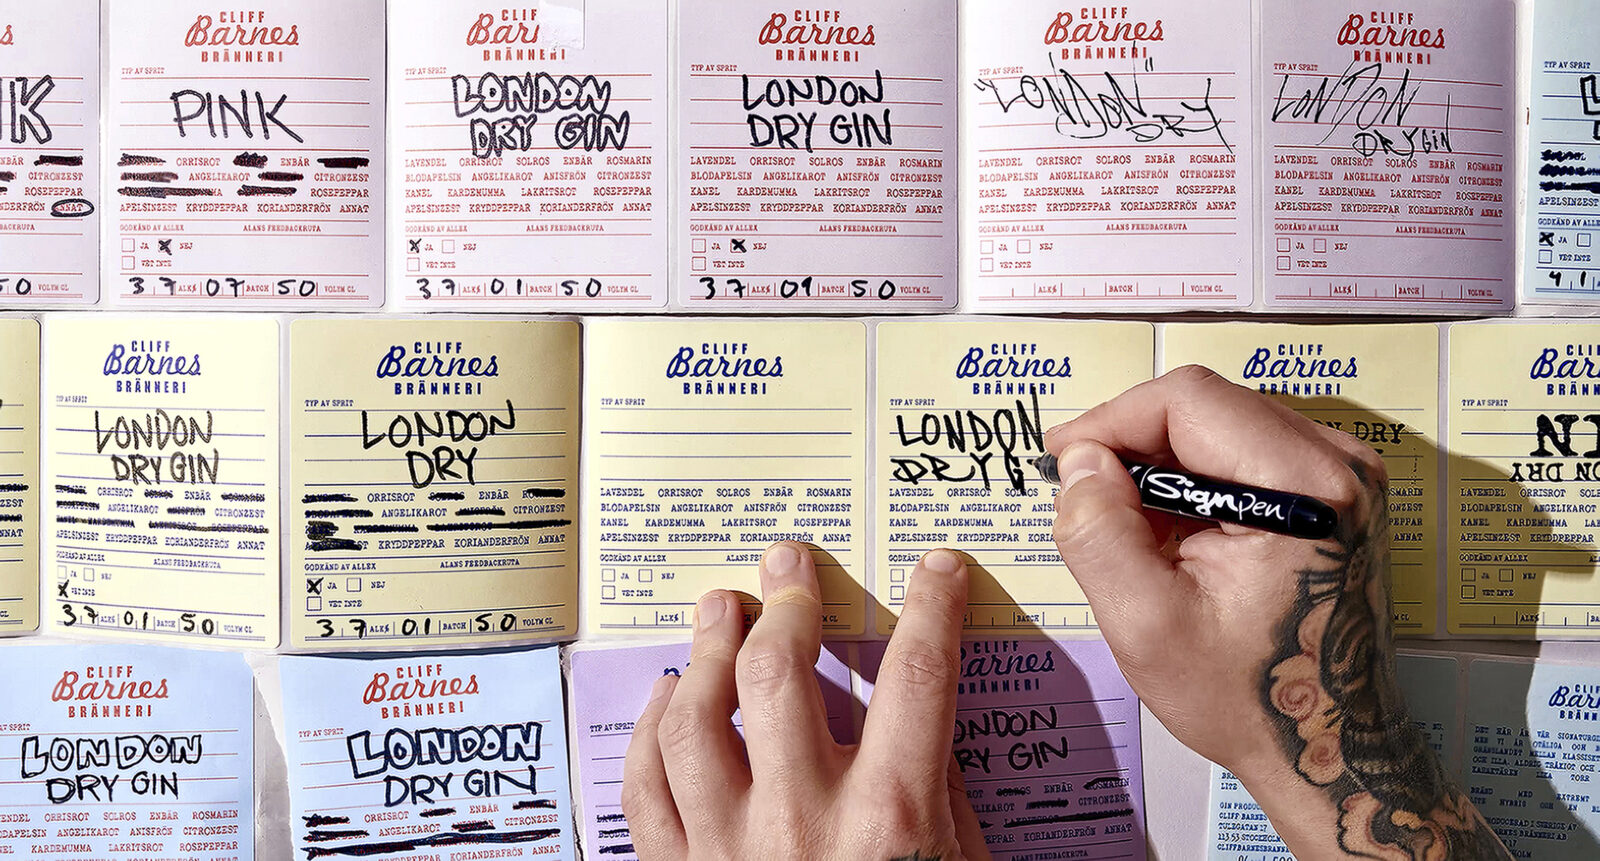 CLIFF
Barnes
BRÄNNERI
TYP AV SPRIT
PINK
ORRISROT ENBÄR
ANGELIKAROT CITRONZEST
ROSEPEPPAR
APELSINZEST KRYDDPEPPAR KORIANDERFRÖN ANNAT
GODKÄND AV ALLEX ALANS FEEDBACKRUTA
JA NEJ
VET INTE
37 ALK% 07 BATCH 50 VOLYM CL
CLIFF
BRÄNNERI
TYP AV SPRIT
LONDON
DRY GIN
LAVENDEL ORRISROT SOLROS ENBÄR ROSMARIN
BLODAPELSIN ANGELIKAROT ANISFRÖN CITRONZEST
KANEL KARDEMUMMA LAKRITSROT ROSEPEPPAR
APELSINZEST KRYDDPEPPAR KORIANDERFRÖN ANNAT
GODKÄND AV ALLEX ALANS FEEDBACKRUTA
JA NEJ
VET INTE
37 ALK% 01 BATCH 50 VOLYM CL
CLIFF
Barnes
BRÄNNERI
TYP AV SPRIT
LONDON
DRY GIN
LAVENDEL ORRISROT SOLROS ENBÄR ROSMARIN
BLODAPELSIN ANGELIKAROT ANISFRÖN CITRONZEST
KANEL KARDEMUMMA LAKRITSROT ROSEPEPPAR
APELSINZEST KRYDDPEPPAR KORIANDERFRÖN ANNAT
GODKÄND AV ALLEX ALANS FEEDBACKRUTA
JA NEJ
VET INTE
37 ALK% 01 BATCH 50 VOLYM CL
CLIFF
Barnes
BRÄNNERI
TYP AV SPRIT
"LONDON"
DRY
LAVENDEL ORRISROT SOLROS ENBÄR ROSMARIN
BLODAPELSIN ANGELIKAROT ANISFRÖN CITRONZEST
KANEL KARDEMUMMA LAKRITSROT ROSEPEPPAR
APELSINZEST KRYDDPEPPAR KORIANDERFRÖN ANNAT
GODKÄND AV ALLEX ALANS FEEDBACKRUTA
JA NEJ
VET INTE
ALK% BATCH VOLYM CL
CLIFF
Barnes
BRÄNNERI
TYP AV SPRIT
LONDON
DRY GIN
LAVENDEL ORRISROT SOLROS ENBÄR ROSMARIN
BLODAPELSIN ANGELIKAROT ANISFRÖN CITRONZEST
KANEL KARDEMUMMA LAKRITSROT ROSEPEPPAR
APELSINZEST KRYDDPEPPAR KORIANDERFRÖN ANNAT
GODKÄND AV ALLEX ALANS FEEDBACKRUTA
JA NEJ
VET INTE
ALK% BATCH VOLYM CL
CLIFF
Barnes
BRÄNNERI
TYP AV SPRIT
LONDON
DRY GIN
ORRISROT ENBÄR
ANGELIKAROT CITRONZEST
APELSINZEST KRYDDPEPPAR KORIANDERFRÖN ANNAT
GODKÄND AV ALLEX ALANS FEEDBACKRUTA
JA NEJ
VET INTE
37 ALK% 01 BATCH 50 VOLYM CL
CLIFF
Barnes
BRÄNNERI
TYP AV SPRIT
LONDON
DRY
ORRISROT ENBÄR
ANGELIKAROT CITRONZEST
KRYDDPEPPAR KORIANDERFRÖN ANNAT
GODKÄND AV ALLEX ALANS FEEDBACKRUTA
JA NEJ
VET INTE
37 ALK% 01 BATCH 50 VOLYM CL
CLIFF
Barnes
BRÄNNERI
TYP AV SPRIT
LAVENDEL ORRISROT SOLROS ENBÄR ROSMARIN
BLODAPELSIN ANGELIKAROT ANISFRÖN CITRONZEST
KANEL KARDEMUMMA LAKRITSROT ROSEPEPPAR
APELSINZEST KRYDDPEPPAR KORIANDERFRÖN ANNAT
GODKÄND AV ALLEX
JA NEJ
VET INTE
ALK%
CLIFF
Barnes
BRÄNNERI
TYP AV SPRIT
LONDON
DRY G
LAVENDEL ORRISROT SOLROS
BLODAPELSIN ANGELIKAROT ANISFRÖN
KANEL KARDEMUMMA LAKRITSROT
APELSINZEST KRYDDPEPPAR KORIANDERFRÖN
JA NEJ
VET INTE
ALK% BATCH
Signpen
CLIFF
Barnes
BRÄNNERI
DRY
TYP AV SPRIT
LAVENDEL
GODKÄND AV ALLEX
JA NEJ
VET INTE
ALK%
CLIFF
Barnes
BRÄNNERI
TYP AV SPRIT
LONDON
DRY GIN
ORRISROT SOLROS ENBÄR ROSMARIN
ANGELIKAROT ANISFRÖN CITRONZEST
KANEL KARDEMUMMA LAKRITSROT ROSEPEPPAR
CLIFF
Barnes
BRÄNNERI
TYP AV SPRIT
LONDON
DRY GIN
ORRISROT ENBÄR
ANGELIKAROT CITRONZEST
TYP AV SPRIT
Barnes
BRÄNNERI
DRY GIN
CITRONZEST
DET HÄR ÄR VÅR
GIN
CLIFF BARNES
TULEGATAN 17
113 53 STOCKHOLM